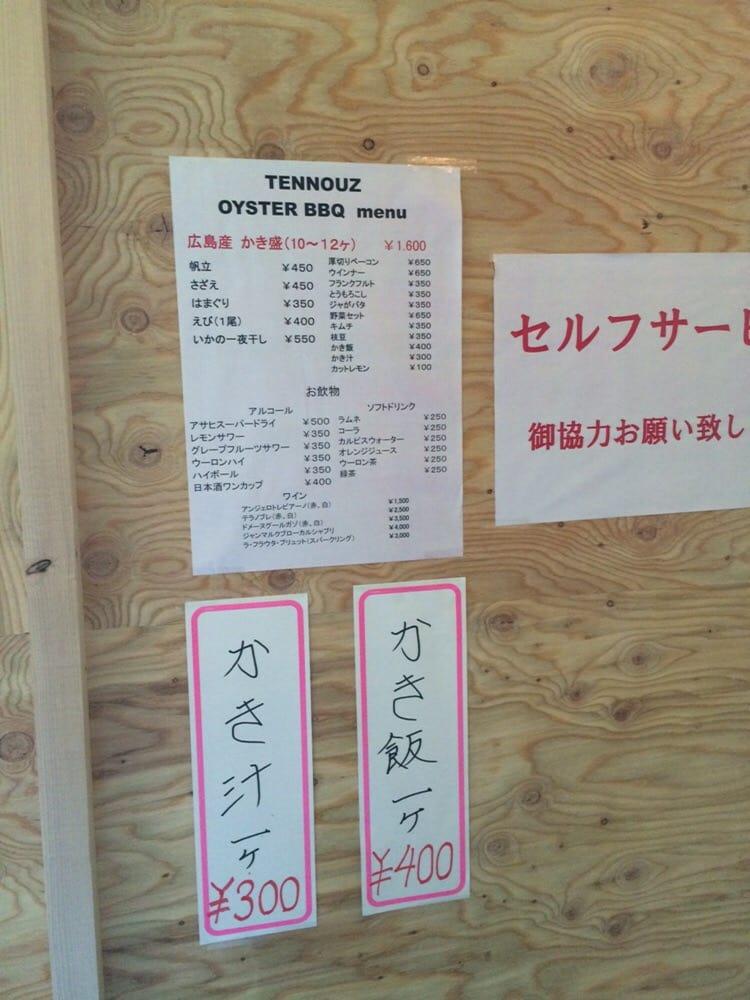 TENNOUZ
OYSTER BBQ menu
広島産 かき盛(10～12ヶ) ￥1.600
帆立 ￥450
さざえ ￥450
はまぐり ￥350
えび(1尾) ￥400
いかの一夜干し ￥550
厚切りベーコン ￥650
ウインナー ￥650
フランクフルト ￥350
とうもろこし ￥350
ジャがバタ ￥350
野菜セット ￥650
キムチ ￥350
枝豆 ￥350
かき飯 ￥400
かき汁 ￥300
カットレモン ￥100
お飲物
アルコール
アサヒスーパードライ ￥500
レモンサワー ￥350
グレープフルーツサワー ￥350
ウーロンハイ ￥350
ハイボール ￥350
日本酒ワンカップ ￥400
ソフトドリンク
ラムネ ￥250
コーラ ￥250
カルピスウォーター ￥250
オレンジジュース ￥250
ウーロン茶 ￥250
緑茶 ￥250
ワイン
アンジェロトレビアーノ(赤、白) ￥1,500
テラノブレ(赤、白) ￥2,500
ドメーヌグールガゾ(赤、白) ￥3,500
ジャンマルクブローカルシャブリ ￥4,000
ラ・フラウタ・ブリュット(スパークリング) ￥3,000
セルフサービ
御協力お願い致し
かき汁一ヶ
¥300
かき飯一ヶ
¥400